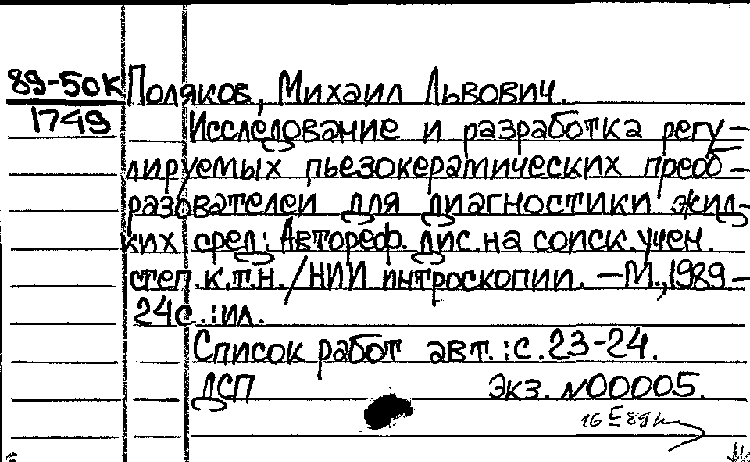 89-50к Поляков, Михаил Львович.
1749 Исследование и разработка регу-
лируемых пьезокерамических преоб-
разователей для диагностики жид-
ких сред: Автореф. дис. на соиск. учен.
степ. к.т.н. / НИИ интроскопии. — М., 1989 —
24с.: ил.
Список работ авт.: с. 23-24.
ДСП Экз. N00005.